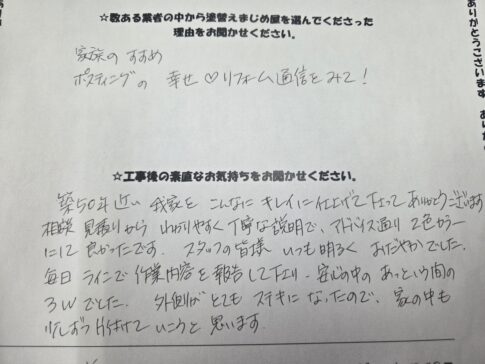 ☆数ある業者の中から塗替えまじめ屋を選んでくださった
理由をお聞かせください。
家族のすすめ
ポスティングの 幸せ♡リフォーム通信をみて!
☆工事後の素直なお気持ちをお聞かせください。
築50年近い 我家を こんなに キレイに仕上げて下さって ありがとうございます
相談 見積りから わかりやすく 丁寧な説明で、アドバイス通り 2色カラー
にして 良かったです. スタッフの皆様 いつも明るく おだやかでした.
毎日 ラインで 作業内容を 報告して下さり、安心の中の あっという間の
3Wでした. 外側が とても ステキに なったので、家の中も
少しずつ片付けて いこうと 思います.
ありがとうございます